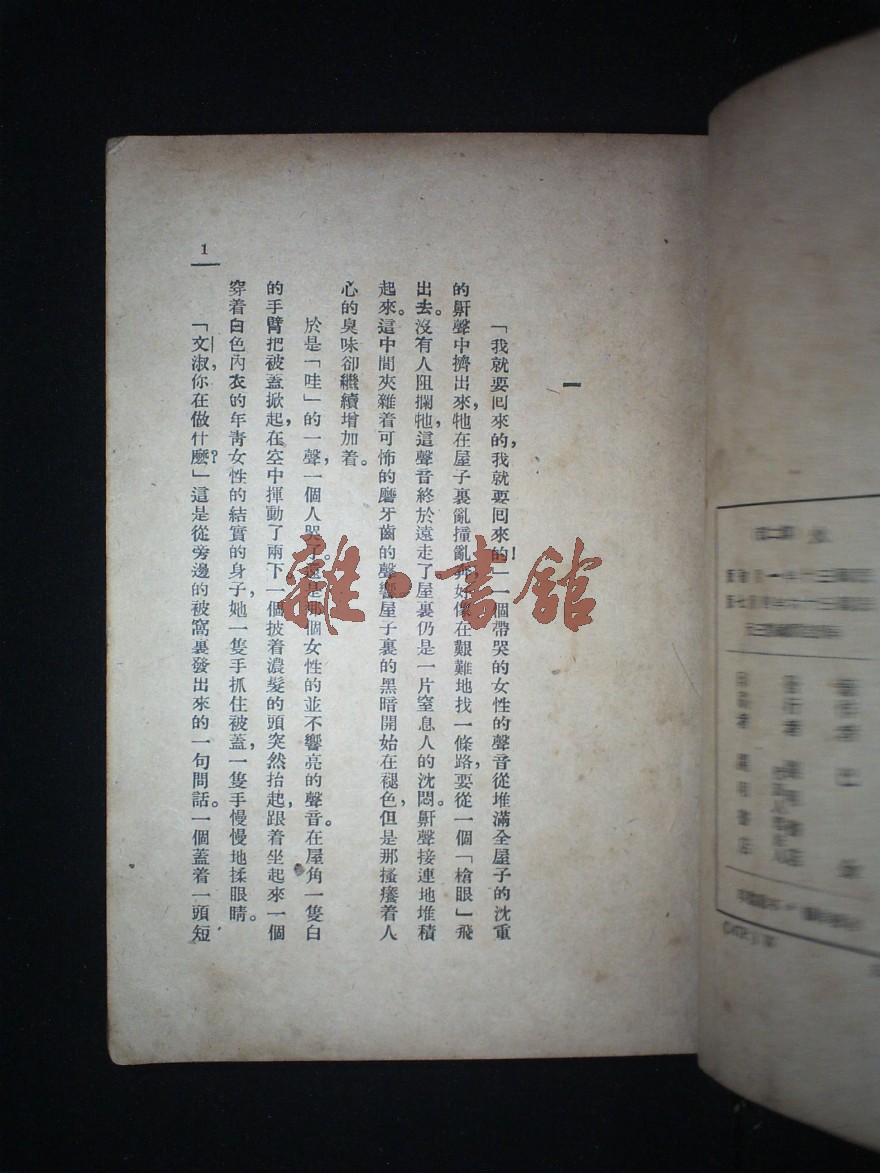 一
「我就要囘來的，我就要囘來的！」一個帶哭的女性的聲音從堆滿全屋子的沈重
的鼾聲中擠出來，牠在屋子裏亂撞亂奔，好像在艱難地找一條路，要從一個「槍眼」飛
出去。沒有人阻攔牠，這聲音終於遠走了。屋裏仍是一片窒息人的沈悶。鼾聲接連地堆積
起來。這中間夾雜着可怖的磨牙齒的聲響。屋子裏的黑暗開始在褪色，但是那搔癢着人
心的臭味卻繼續增加着。
於是「哇」的一聲，一個人哭了。還是那個女性的並不響亮的聲音。在屋角一隻白
的手臂把被蓋掀起，在空中揮動了兩下，一個披着濃髮的頭突然抬起，跟着坐起來一個
穿着白色內衣的年青女性的結實的身子，她一隻手抓住被蓋，一隻手慢慢地揉眼睛。
「文淑，你在做什麽？」這是從旁邊的被窩裏發出來的一句問話。一個蓋着一頭短
1
雜·書館